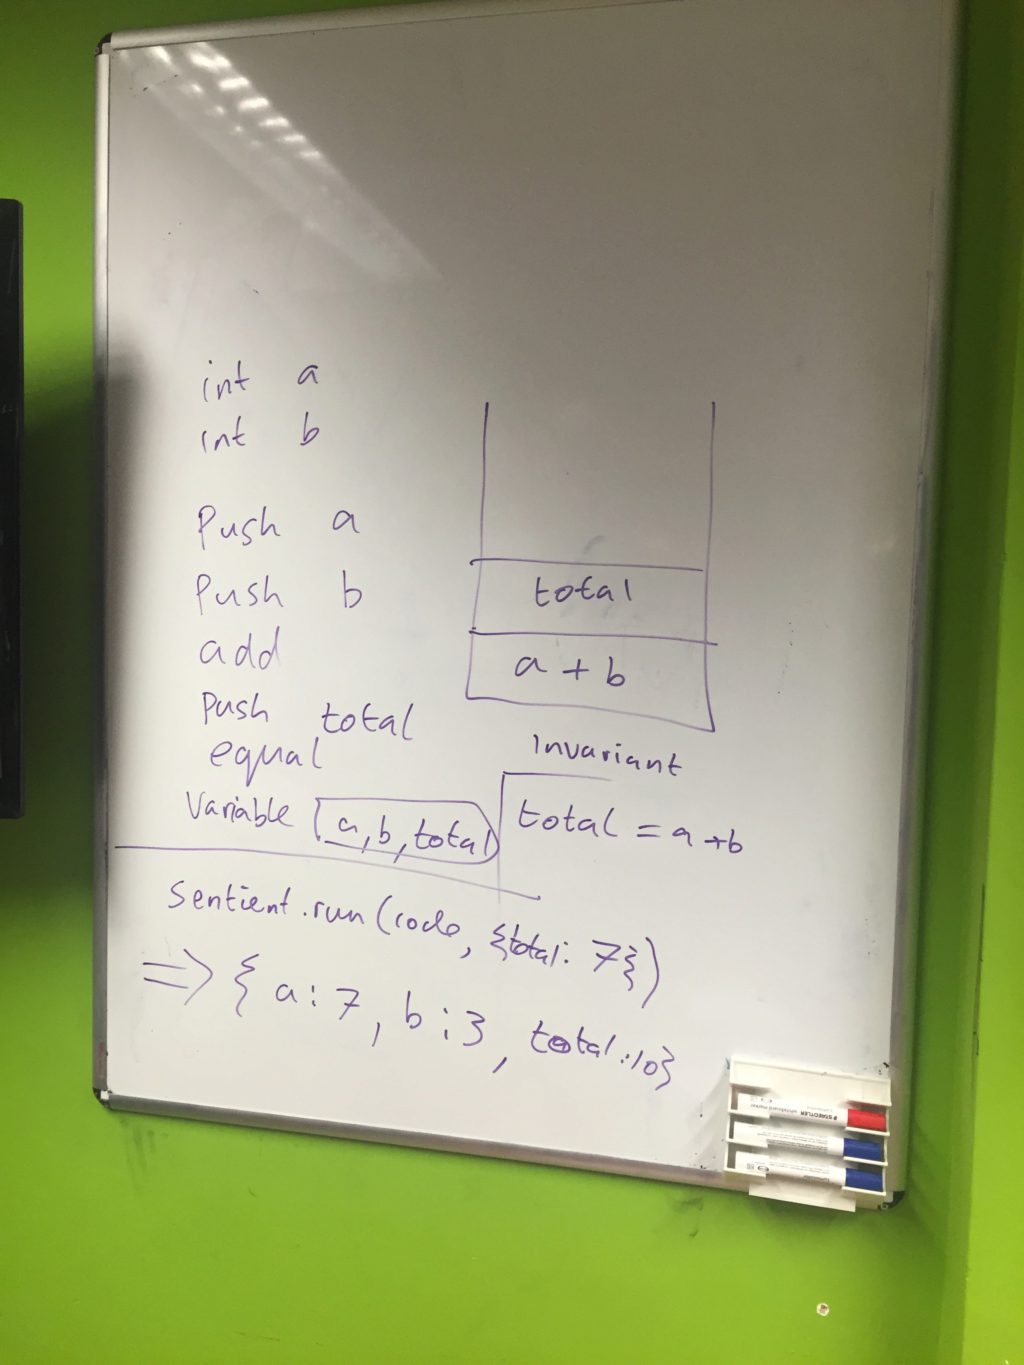 int a
int b
Push a
Push b
add
Push total
equal
Variable a, b, total
total
a + b
Invariant
total = a + b
Sentient.run(code, {total: 7})
=> { a: 7, b: 3, total: 10}
STAEDTLER
whiteboard marker